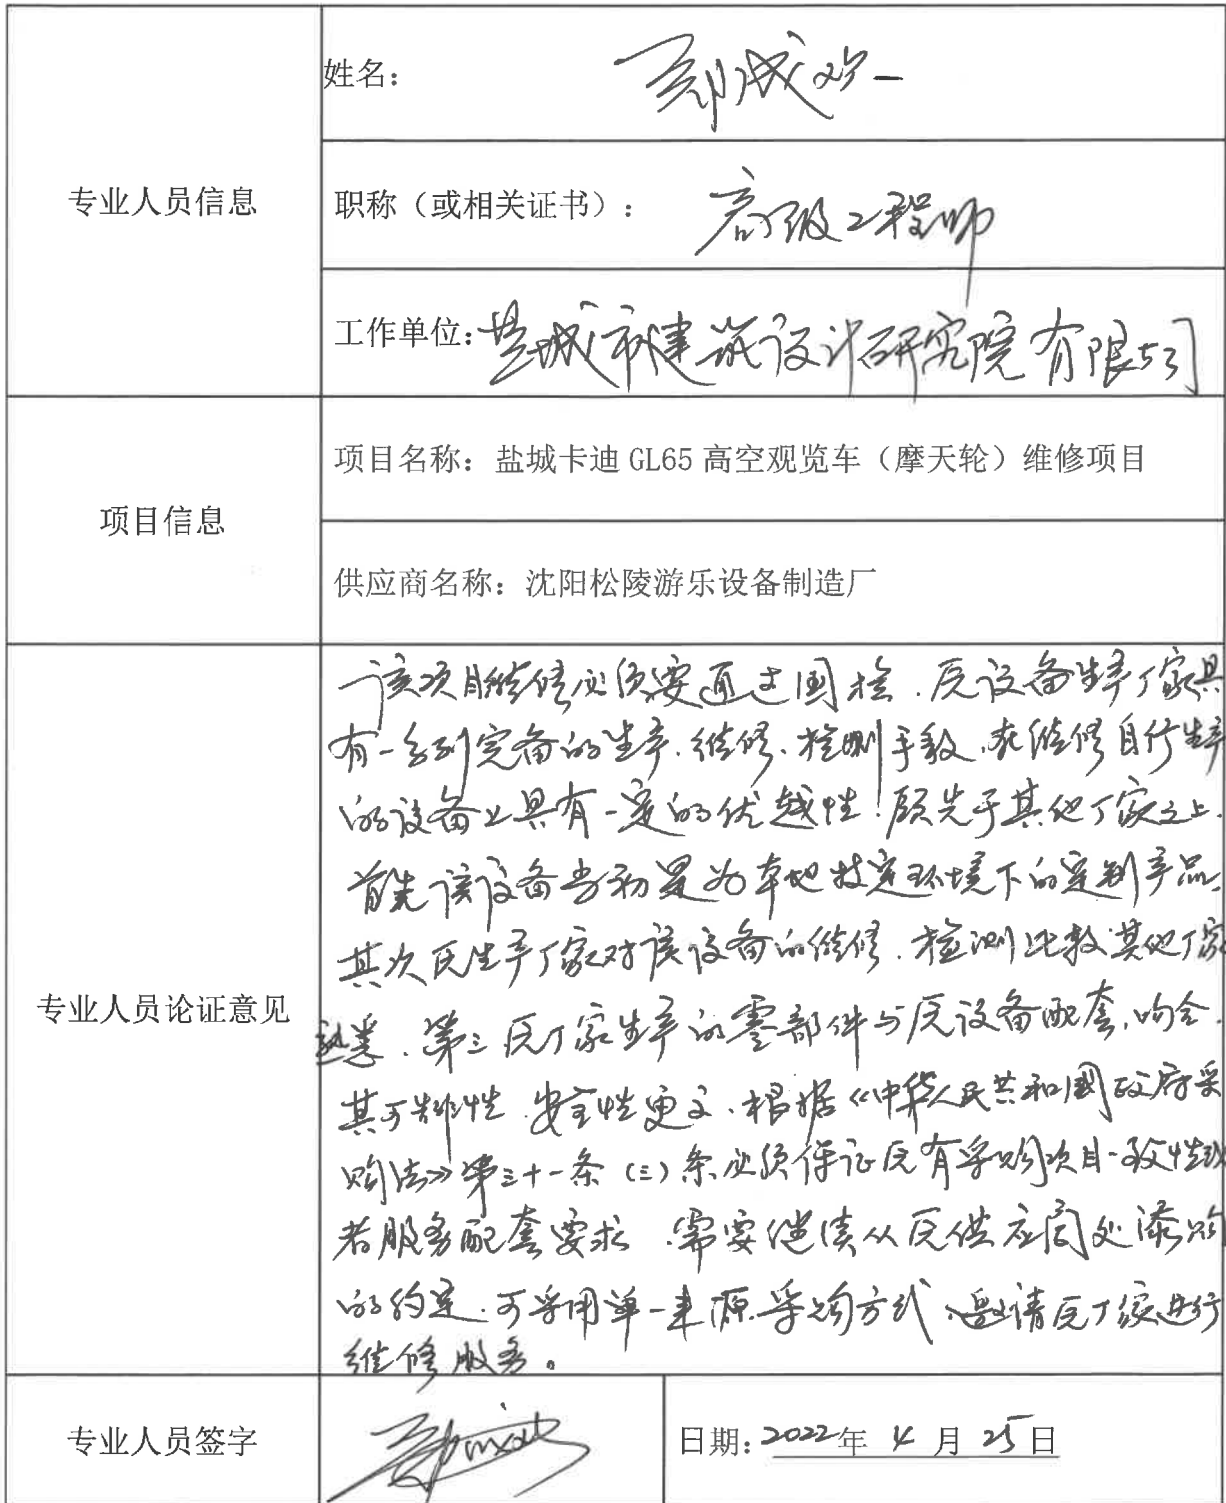 姓名：
专业人员信息
职称（或相关证书）：高级工程师
工作单位：盐城市建筑设计研究院有限公司
项目信息
项目名称：盐城卡迪 GL65 高空观览车（摩天轮）维修项目
供应商名称：沈阳松陵游乐设备制造厂
专业人员论证意见
该项目维修必须要通过国检.原设备生产厂家具
有一系列完备的生产.维修.检测手段.在维修自行生产
的设备上具有一定的优越性!领先于其他厂家之上.
首先该设备当初是为本地特定环境下的定制产品,
其次原生产厂家对该设备的维修.检测比较其他厂家
熟悉.第三原厂家生产的零部件与原设备配套.吻合.
其可靠性.安全性更高.根据《中华人民共和国政府采
购法》第三十一条（三）条必须保证原有采购项目一致性或
者服务配套要求.需要继续从原供应商处添购
的约定.可采用单一来源采购方式、邀请原厂家进行
维修服务。
专业人员签字
日期：2022年 4 月 25日